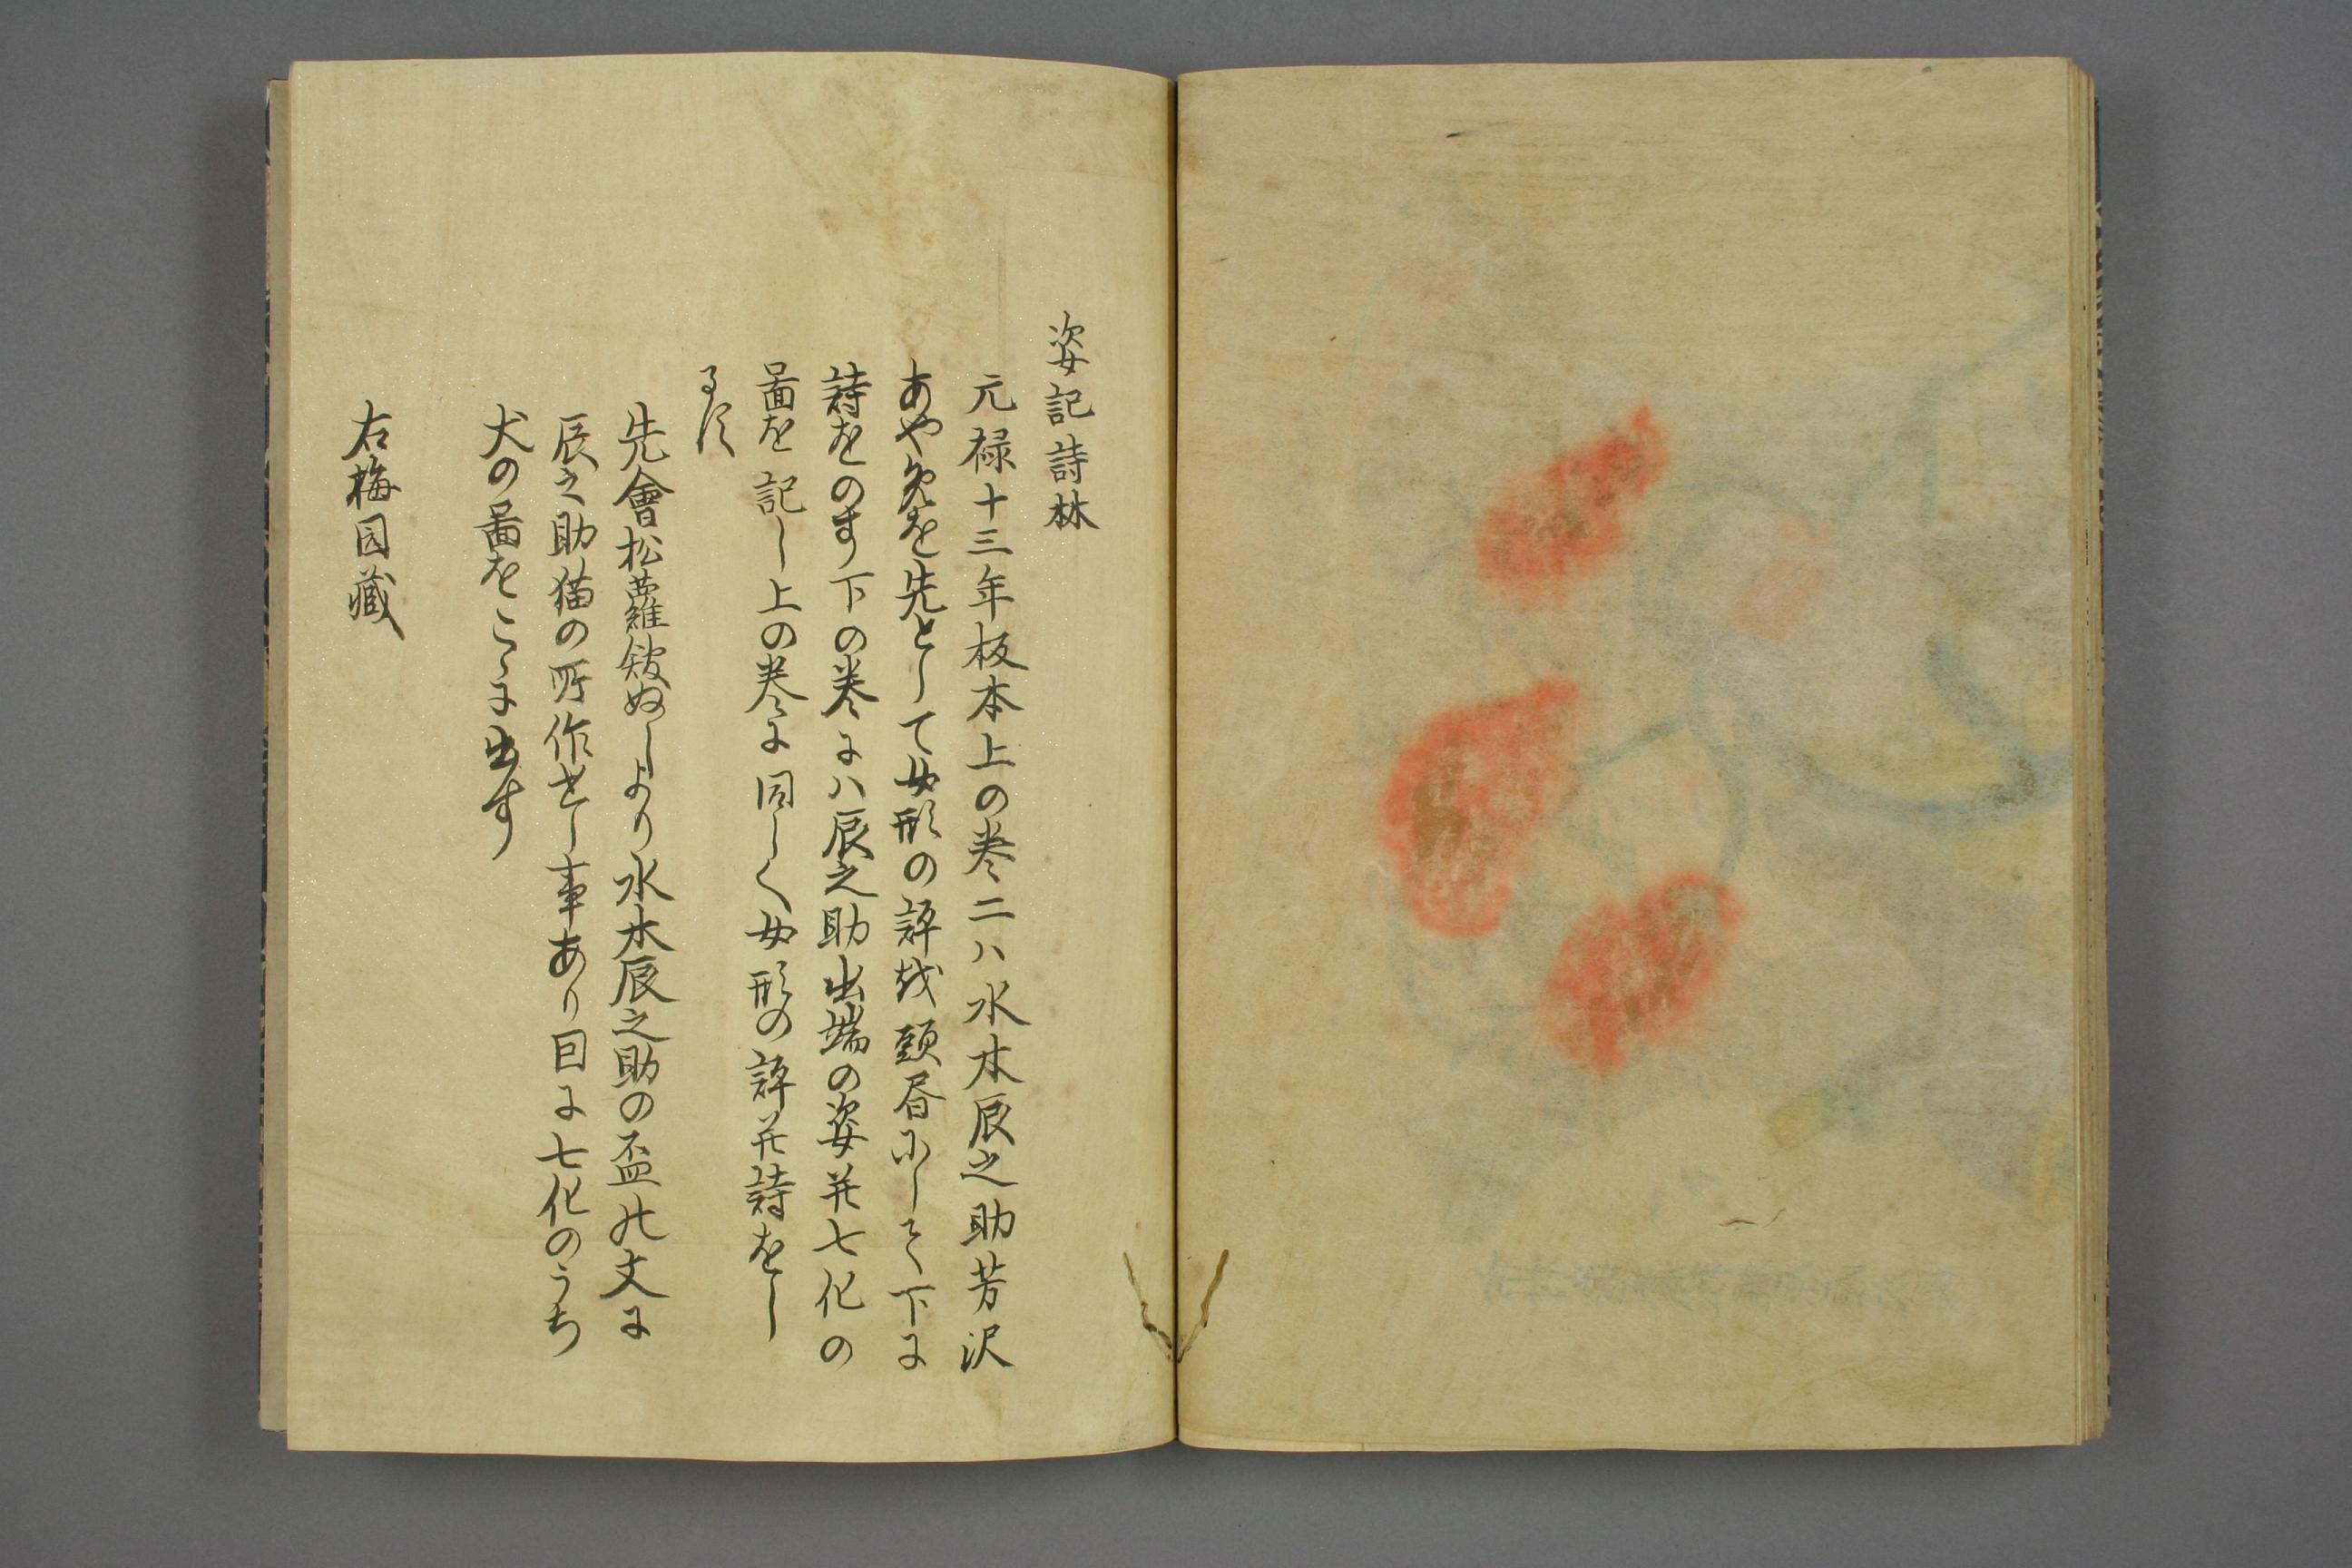 姿記詩林
元禄十三年板本上の巻二ハ水木辰之助芳沢
あやめを先として女形の評を頭書にして下に
詩をのす下の巻にハ辰之助出端の姿并七化の
啚を記し上の巻に同しく女形の評并詩をし
るす
先會松蘿舘ぬしより水木辰之助の盃の文に
辰之助猫の所作せし事あり因に七化のうち
犬の啚をこゝに出す
右梅园藏